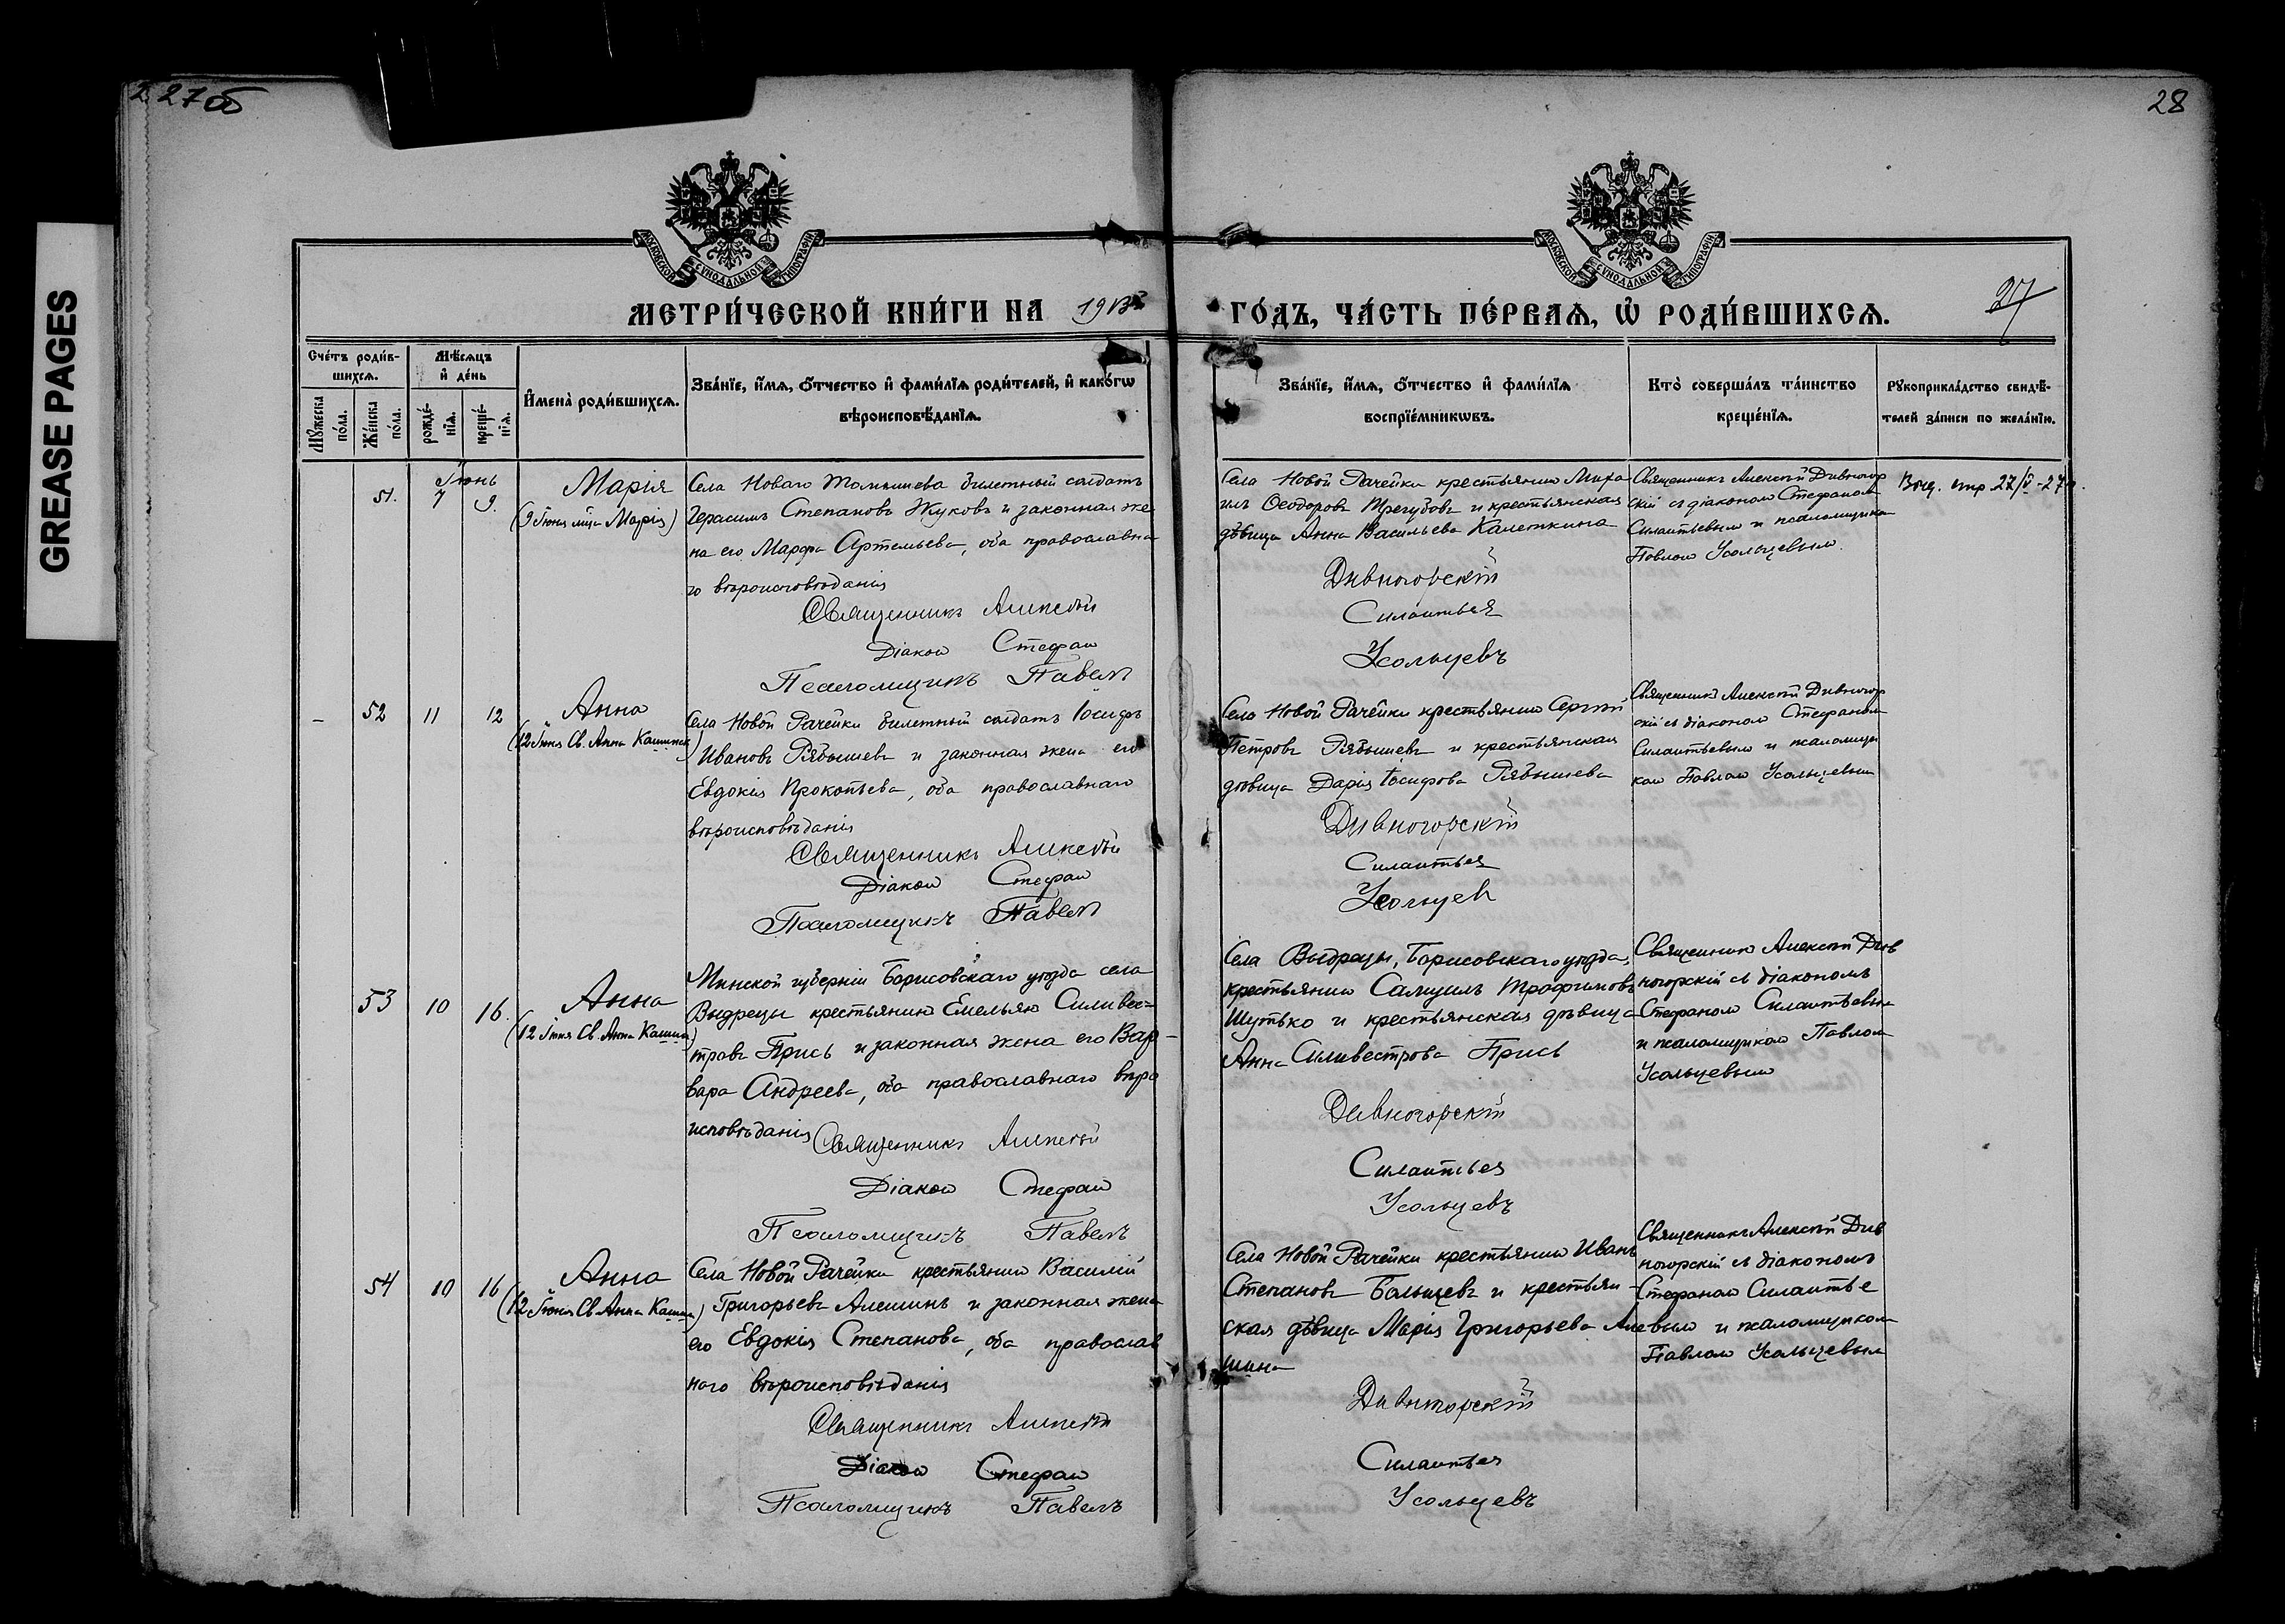 GREASE PAGES
27об
28
МОСКОВСКОЙ СѴНОДАЛЬНОЙ ТИПОГРАФІИ
МОСКОВСКОЙ СѴНОДАЛЬНОЙ ТИПОГРАФІИ
МЕТРИ́ЧЕСКОЙ КНИ́ГИ НА
ГО́ДЪ, ЧА́СТЬ ПЕ́РВАѦ, Ѡ РОДИ́ВШИХСѦ.
27
Сче́тъ роди́в-
шихсѧ.
Мѣ́сѧцъ
и де́нь
Мꙋ́жеска
по́ла.
Же́нска
по́ла.
рожде́-
нїѧ.
креще́-
нїѧ.
Имена̀ роди́вшихсѧ.
Зва́нїе, и́мѧ, ѻ́тчество и фами́лїѧ роди́телей, и како́гѡ
вѣроисповѣ́данїѧ.
Зва́нїе, и́мѧ, ѻ́тчество и фами́лїѧ
воспрїе́мникѡвъ.
Кто̀ соверша́лъ та́инство
креще́нїѧ.
Рꙋкоприкла́дство свидѣ́-
телей за́писи по жела́нїю.
Іюнь
51. 7 9.
Марія
(9 Іюня мца Марія)
Села Новаго Томышева билетный солдатъ
Герасимъ Степановъ Жуковъ и законная же
на его Марфа Артемьева, оба православна
го вѣроисповѣданія
Священникъ Алексѣй
Діаконъ Стефанъ
Псаломщикъ Павелъ
Села Новой Рачейки крестьянинъ Миха
илъ Ѳеодоровъ Трегубовъ и крестьянская
дѣвица Анна Васильева Калеткина
Дивногорскій
Силантьев
Усольцевъ
Священникъ Алексѣй Дивногор
скій съ діаконом Стефаном
Силантьевым и псаломщико
Павлом Усольцевым.
– 52 11 12
Анна
(12 Іюня Св. Анна Кашинск)
Села Новой Рачейки билетный солдатъ Іосифъ
Ивановъ Рябышевъ и законная жена его
Евдокія Прокопьева, оба православнаго
вѣроисповѣданія
Священникъ Алексѣй
Діаконъ Стефанъ
Псаломщикъ Павелъ
Села Новой Рачейки крестьянинъ Сергій
Петровъ Рябышевъ и крестьянская
дѣвица Дарія Іосифова Рябышева
Дивногорскій
Силантьев
Усольцев
Священникъ Алексѣй Дивногор
скій съ діаконом Стефаном
Силантьевым и псаломщи
ком Павлом Усольцевым
53 10 16.
Анна
(12 Іюня Св. Анна Кашин)
Минской губерніи Борисовскаго уѣзда села
Выдрецы крестьянинъ Емельян Силивес=
тровъ Прись и законная жена его Вар-
вара Андреева, оба православнаго вѣро
исповѣданія
Священникъ Алексѣй
Діаконъ Стефанъ
Псаломщикъ Павелъ
Села Выдрецы, Борисовскаго уѣзда,
крестьянинъ Самуилъ Трофимовъ
Шутько и крестьянская дѣвица
Анна Силивестрова Прись
Дивногорскій
Силантьев
Усольцевъ
Священник Алексѣй Див
ногорскій съ діакономъ
Стефаном Силантьевым
и псаломщиком Павлом
Усольцевым
54 10 16
Анна
(12 Іюня Св Анна Кашин)
Села Новой Рачейки крестьянинъ Василій
Григорьевъ Алешинъ и законная жена
его Евдокія Степанова, оба православ
наго вѣроисповѣданія
Священникъ Алексѣй
Діаконъ Стефанъ
Псаломщикъ Павелъ
Села Новой Рачейки крестьянинъ Иванъ
Степановъ Большевъ и крестьян-
ская дѣвица Марія Григорьева Але
шина
Дивногорскій
Силантьев
Усольцевъ
Священникъ Алексѣй Див
ногорскій съ діакономъ
Стефаном Силантье
вым и псаломщиком
Павлом Усольцевым